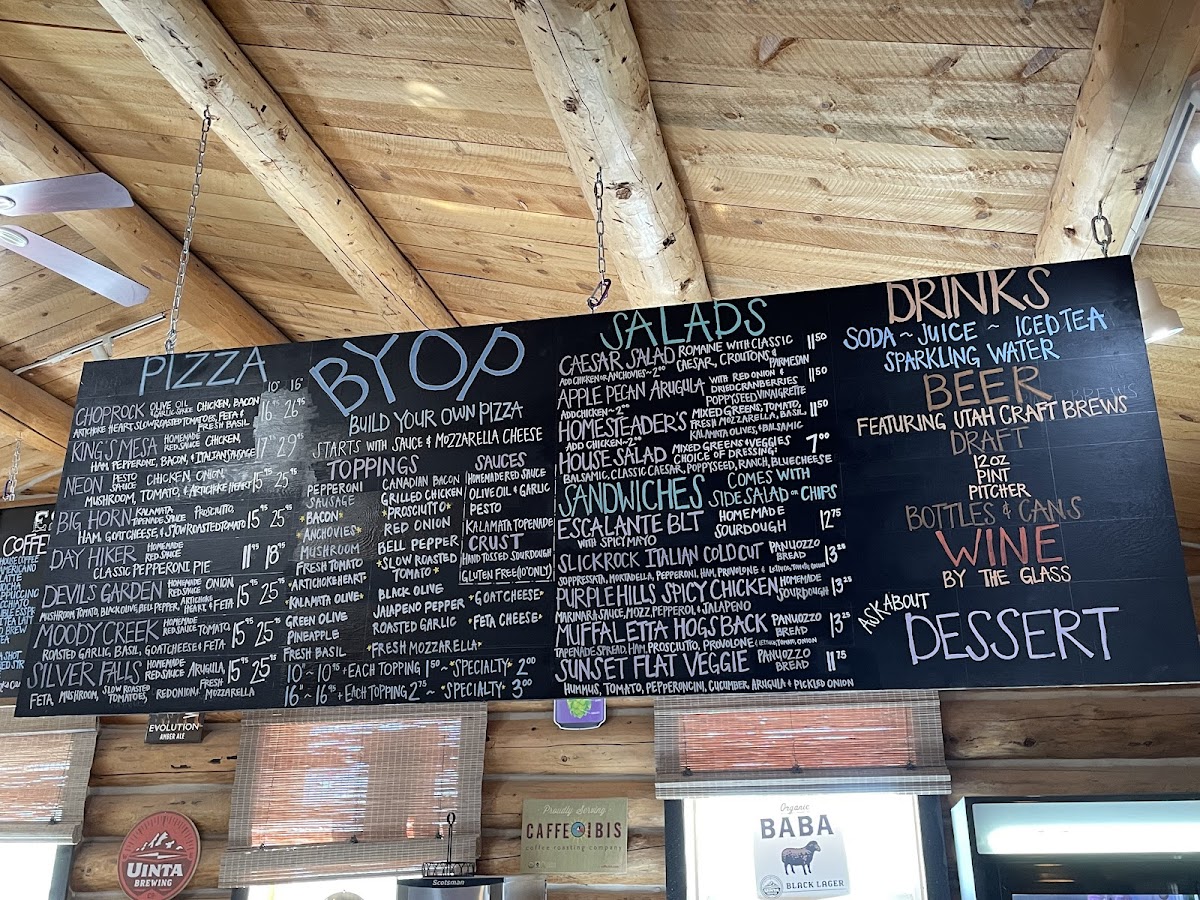 PIZZA
10" 16"
CHOPROCK OLIVE OIL GARLIC SAUCE CHICKEN, BACON
ARTICHOKE HEART, SLOW ROASTED TOMATOES, FETA & FRESH BASIL 16⁹⁵ 26⁹⁵
KING'S MESA HOMEMADE RED SAUCE CHICKEN,
HAM, PEPPERONI, BACON, & ITALIAN SAUSAGE 17⁹⁵ 29⁹⁵
NEON PESTO SAUCE CHICKEN, ONION
MUSHROOM, TOMATO, & ARTICHOKE HEART 15⁹⁵ 25⁹⁵
BIG HORN KALAMATA TAPENADE SAUCE PROSCIUTTO,
HAM, GOAT CHEESE, & SLOW ROASTED TOMATO 15⁹⁵ 25⁹⁵
DAY HIKER HOMEMADE RED SAUCE
CLASSIC PEPPERONI PIE 11⁹⁵ 18⁹⁵
DEVILS GARDEN HOMEMADE RED SAUCE ONION
MUSHROOM, TOMATO, BLACK OLIVE, BELL PEPPER, ARTICHOKE HEART & FETA 15⁹⁵ 25⁹⁵
MOODY CREEK HOMEMADE RED SAUCE TOMATO
ROASTED GARLIC, BASIL, GOAT CHEESE & FETA 15⁹⁵ 25⁹⁵
SILVER FALLS HOMEMADE RED SAUCE ARUGULA
FETA, MUSHROOM, SLOW ROASTED TOMATOES, RED ONION & FRESH MOZZARELLA 15⁹⁵ 25⁹⁵
BYOP
BUILD YOUR OWN PIZZA
STARTS WITH SAUCE & MOZZARELLA CHEESE
TOPPINGS
PEPPERONI
SAUSAGE
*BACON*
*ANCHOVIES*
MUSHROOM
FRESH TOMATO
*ARTICHOKE HEART
*KALAMATA OLIVE*
GREEN OLIVE
PINEAPPLE
FRESH BASIL
CANADIAN BACON
GRILLED CHICKEN
*PROSCIUTTO*
RED ONION
BELL PEPPER
*SLOW ROASTED
TOMATO*
BLACK OLIVE
JALAPENO PEPPER
ROASTED GARLIC
*FRESH MOZZARELLA*
SAUCES
HOMEMADE RED SAUCE
OLIVE OIL & GARLIC
PESTO
KALAMATA TAPENADE
CRUST
HAND TOSSED SOURDOUGH
GLUTEN FREE (10" ONLY)
*GOAT CHEESE*
*FETA CHEESE*
10" ~ 10⁹⁵ + EACH TOPPING 1⁵⁰ ~ *SPECIALTY* 2⁰⁰
16" ~ 16⁹⁵ + EACH TOPPING 2⁷⁵ ~ *SPECIALTY* 3⁰⁰
SALADS
CAESAR SALAD ROMAINE WITH CLASSIC CAESAR, CROUTONS & PARMESAN 11⁵⁰
ADD CHICKEN OR ANCHOVIES ~ 2⁰⁰
APPLE PECAN ARUGULA WITH RED ONION & DRIED CRANBERRIES POPPYSEED VINAIGRETTE 11⁵⁰
ADD CHICKEN ~ 2⁰⁰
HOMESTEADER'S MIXED GREENS, TOMATO, FRESH MOZZARELLA, BASIL, KALAMATA OLIVES, & BALSAMIC 11⁵⁰
ADD CHICKEN ~ 2⁰⁰
HOUSE SALAD MIXED GREENS & VEGGIES CHOICE OF DRESSING: 7⁰⁰
BALSAMIC, CLASSIC CAESAR, POPPYSEED, RANCH, BLUE CHEESE
SANDWICHES COMES WITH SIDE SALAD OR CHIPS
ESCALANTE BLT HOMEMADE SOURDOUGH 12⁷⁵
WITH SPICY MAYO
SLICKROCK ITALIAN COLD CUT PANUOZZO BREAD 13²⁵
SOPPRESSATA, MORTADELLA, PEPPERONI, HAM, PROVOLONE & LETTUCE, TOMATO, ONION
PURPLE HILLS SPICY CHICKEN HOMEMADE SOURDOUGH 13²⁵
MARINARA SAUCE, MOZZ, PEPPEROL, & JALAPENO
MUFFALETTA HOGS BACK PANUOZZO BREAD 13²⁵
TAPENADE SPREAD, HAM, PROSCIUTTO, PROVOLONE & LETTUCE, TOMATO, ONION
SUNSET FLAT VEGGIE PANUOZZO BREAD 11⁷⁵
HUMMUS, TOMATO, PEPPERONCINI, CUCUMBER, ARUGULA & PICKLED ONION
DRINKS
SODA ~ JUICE ~ ICED TEA
SPARKLING WATER
BEER
FEATURING UTAH CRAFT BREWS
DRAFT
12oz
PINT
PITCHER
BOTTLES & CANS
WINE
BY THE GLASS
ASK ABOUT
DESSERT
COFFEE
HOUSE COFFEE
AMERICANO
LATTE
EVOLUTION
AMBER ALE
UINTA
BREWING
Proudly Serving
CAFFE IBIS
coffee roasting company
Scotsman
Organic
BABA
BLACK LAGER